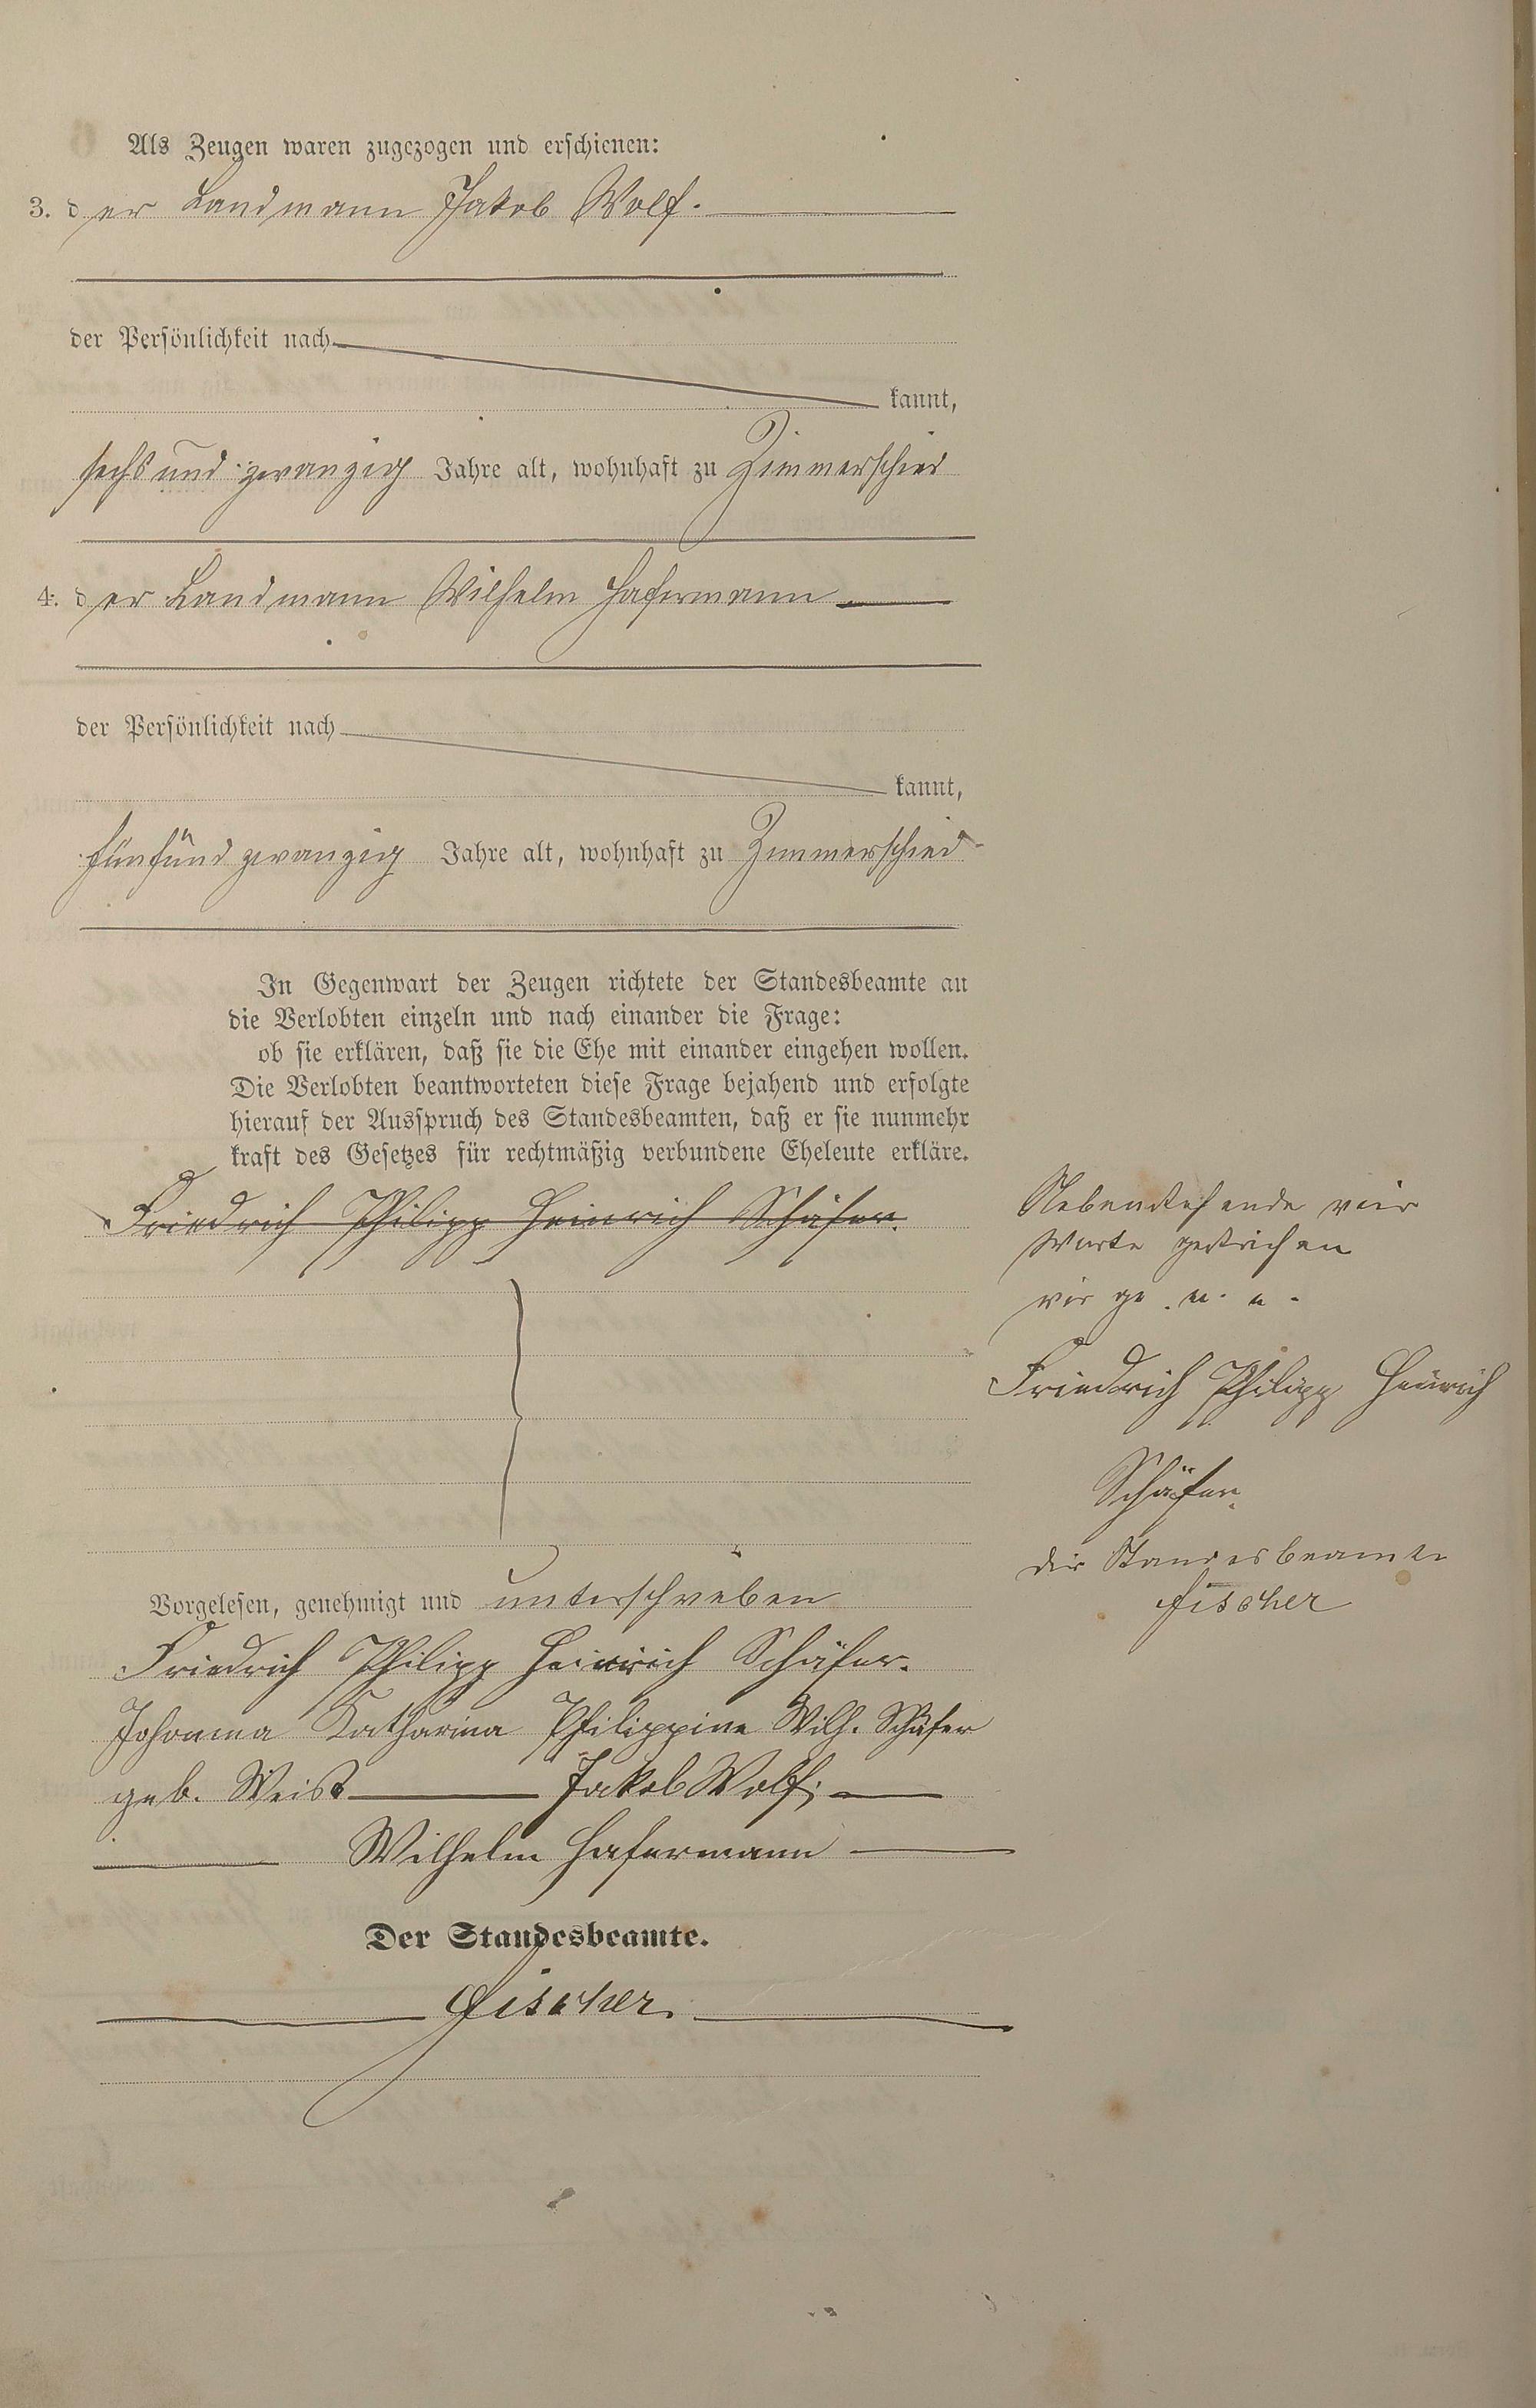 Als Zeugen waren zugezogen und erschienen:
3. der Landmann Jakob Wolf.
der Persönlichkeit nach
kannt,
sechs und zwanzig Jahre alt, wohnhaft zu Zimmerschied
4. der Landmann Wilhelm Hafermann
der Persönlichkeit nach
kannt,
fünfundzwanzig Jahre alt, wohnhaft zu Zimmerschied
In Gegenwart der Zeugen richtete der Standesbeamte an
die Verlobten einzeln und nach einander die Frage:
ob sie erklären, daß sie die Ehe mit einander eingehen wollen.
Die Verlobten beantworteten diese Frage bejahend und erfolgte
hierauf der Ausspruch des Standesbeamten, daß er sie nunmehr
kraft des Gesetzes für rechtmäßig verbundene Eheleute erkläre.
Friedrich Philipp Heinrich Schäfer.
Vorgelesen, genehmigt und unterschrieben
Friedrich Philipp Heinrich Schäfer.
Johanna Katharina Philippine Wilh. Schäfer
geb. Weist Jakob Wolf;
Wilhelm Hafermann
Der Standesbeamte.
Fischer.
Nebenstehende vier
Worte gestrichen
v. g. u.
Friedrich Philipp Heinrich
Schäfer.
der Standesbeamte
Fischer